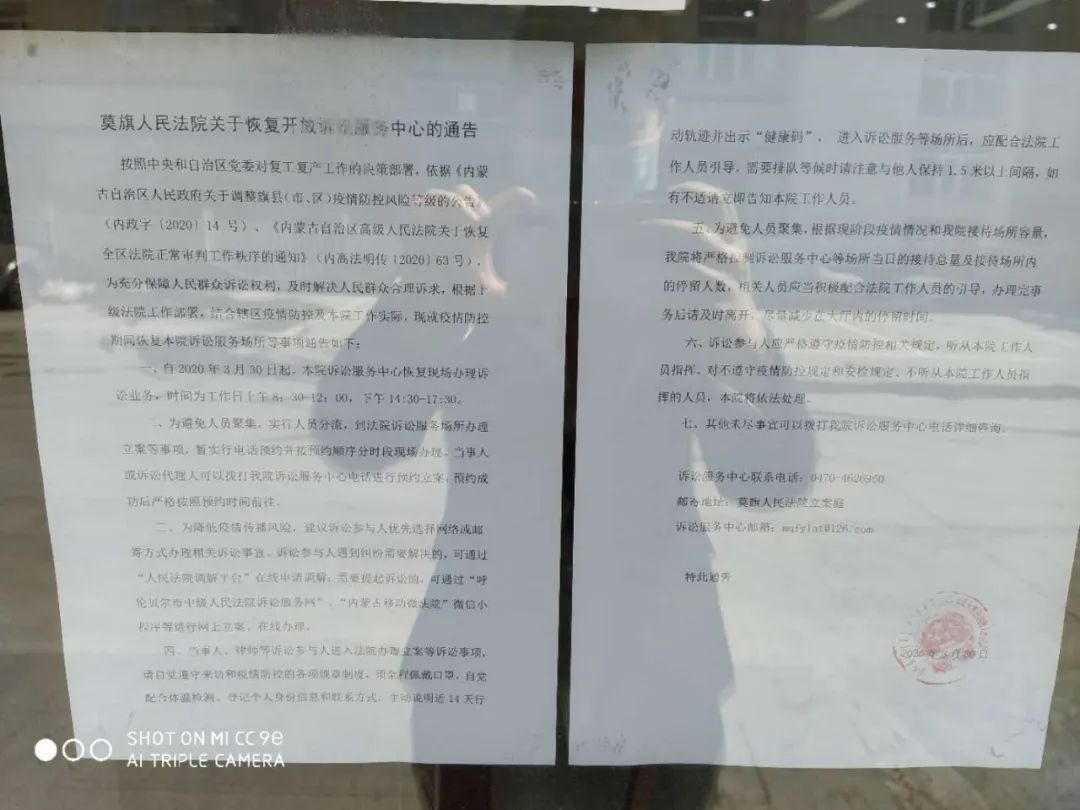 莫旗人民法院关于恢复开放诉讼服务中心的通告
按照中央和自治区党委对复工复产工作的决策部署，依据《内蒙
古自治区人民政府关于调整旗县（市、区）疫情防控风险等级的公告》
（内政字〔2020〕14 号）、《内蒙古自治区高级人民法院关于恢复
全区法院正常审判工作秩序的通知》（内高法明传〔2020〕63 号），
为充分保障人民群众诉讼权利，及时解决人民群众合理诉求，根据上
级法院工作部署，结合辖区疫情防控及本院工作实际，现就疫情防控
期间恢复本院诉讼服务场所等事项通告如下：
一、自 2020 年 3 月 30 日起，本院诉讼服务中心恢复现场办理诉
讼业务，时间为工作日上午 8：30-12：00，下午 14:30-17:30。
二、为避免人员聚集，实行人员分流，到法院诉讼服务场所办理
立案等事项，暂实行电话预约并按预约顺序分时段现场办理。当事人
或诉讼代理人可以拨打我院诉讼服务中心电话进行预约立案，预约成
功后严格按照预约时间前往。
三、为降低疫情传播风险，建议诉讼参与人优先选择网络或邮
寄方式办理相关诉讼事宜。诉讼参与人遇到纠纷需要解决的，可通过
“人民法院调解平台”在线申请调解；需要提起诉讼的，可通过“呼
伦贝尔市中级人民法院诉讼服务网”、“内蒙古移动微法院”微信小
程序等进行网上立案、在线办理。
四、当事人、律师等诉讼参与人进入法院办理立案等诉讼事项，
请自觉遵守来访和疫情防控的各项规章制度，须全程佩戴口罩，自觉
配合体温检测、登记个人身份信息和联系方式，主动说明近 14 天行
动轨迹并出示“健康码”，进入诉讼服务等场所后，应配合法院工
作人员引导，需要排队等候时请注意与他人保持 1.5 米以上间隔，如
有不适请立即告知本院工作人员。
五、为避免人员聚集，根据现阶段疫情情况和我院接待场所容量，
我院将严格控制诉讼服务中心等场所当日的接待总量及接待场所内
的停留人数，相关人员应当积极配合法院工作人员的引导，办理完事
务后请及时离开，尽量减少在大厅内的停留时间。
六、诉讼参与人应严格遵守疫情防控相关规定，听从本院工作人
员指挥。对不遵守疫情防控规定和安检规定、不听从本院工作人员指
挥的人员，本院将依法处理。
七、其他未尽事宜可以拨打我院诉讼服务中心电话详细咨询。
诉讼服务中心联系电话：0470-4626960
邮寄地址：莫旗人民法院立案庭
诉讼服务中心邮箱：mqfylat@126.com
特此通告
SHOT ON MI CC 9e
AI TRIPLE CAMERA